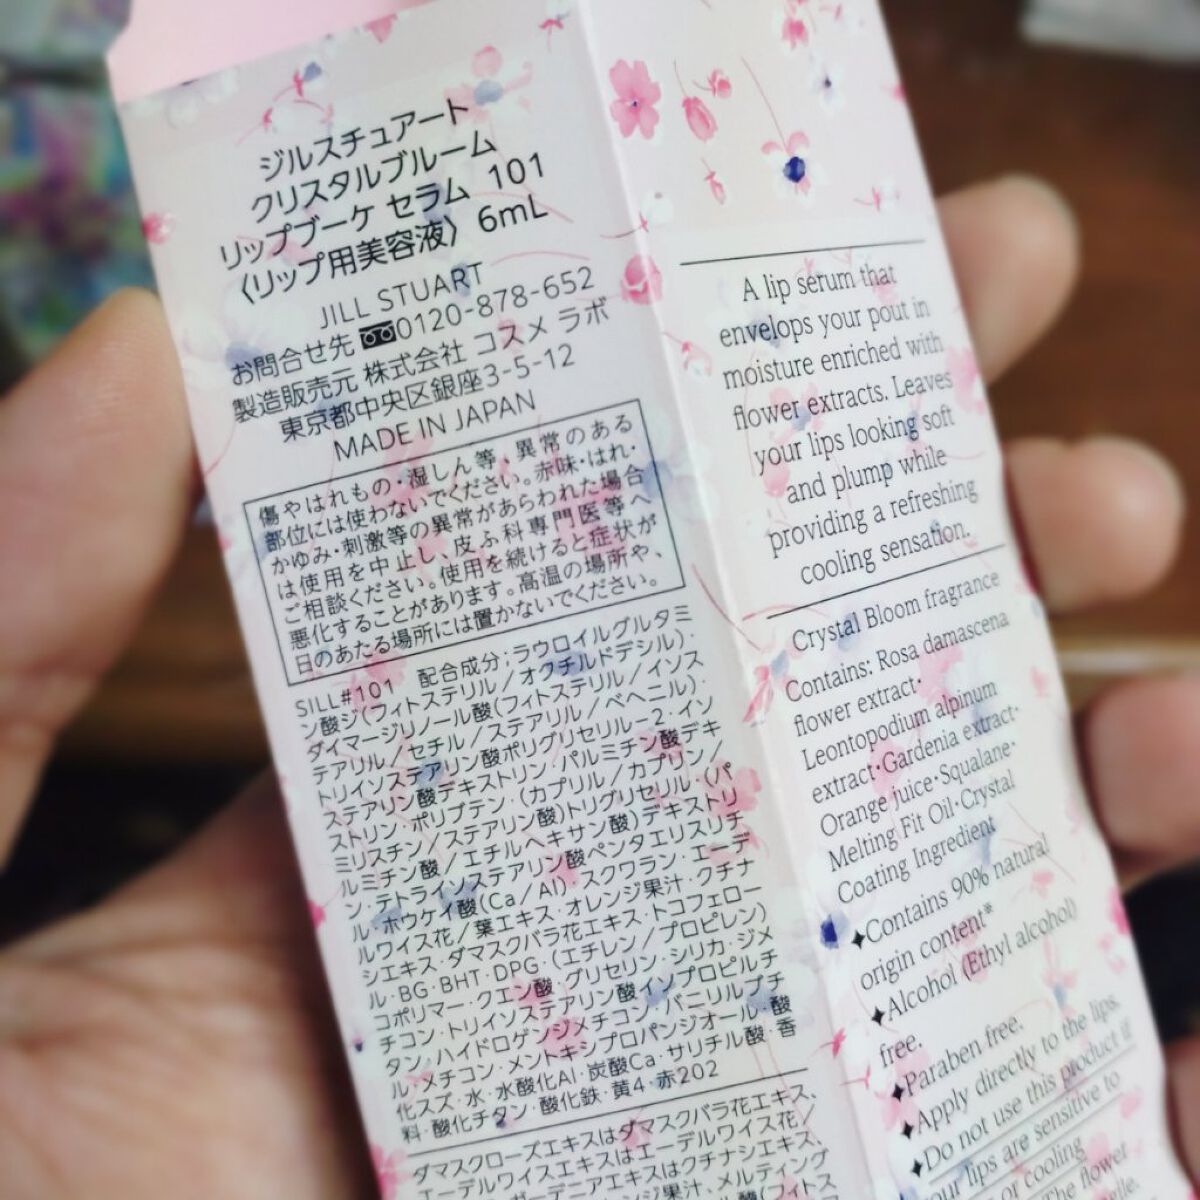 ジルスチュアート
クリスタルブルーム
リップブーケ セラム 101
〈リップ用美容液〉 6mL
JILL STUART
お問合せ先 0120-878-652
製造販売元 株式会社 コスメ ラボ
東京都中央区銀座3-5-12
MADE IN JAPAN
傷やはれもの・湿しん等、異常のある
部位には使わないでください。赤味・はれ・
かゆみ・刺激等の異常があらわれた場合
は使用を中止し、皮ふ科専門医等へ
ご相談ください。使用を続けると症状が
悪化することがあります。高温の場所や、
日のあたる場所には置かないでください。
SILL#101 配合成分:ラウロイルグルタミ
ン酸ジ(フィトステリル/オクチルドデシル)・
ダイマージリノール酸(フィトステリル/イソス
テアリル/セチル/ステアリル/ベヘニル)・
トリイソステアリン酸ポリグリセリル-2・イソ
ステアリン酸デキストリン・パルミチン酸デキ
ストリン・ポリブテン・(カプリル/カプリン/
ミリスチン/ステアリン酸)トリグリセリル・(パ
ルミチン酸/エチルヘキサン酸)デキストリ
ン・テトライソステアリン酸ペンタエリスリチ
ル・ホウケイ酸(Ca/Al)・スクワラン・エーデ
ルワイス花/葉エキス・オレンジ果汁・クチナ
シエキス・ダマスクバラ花エキス・トコフェロー
ル・BG・BHT・DPG・(エチレン/プロピレン)
コポリマー・クエン酸・グリセリン・シリカ・ジメ
チコン・トリイソステアリン酸イソプロピルチ
タン・ハイドロゲンジメチコン・バニリルブチ
ル・メチコン・メントキシプロパンジオール・酸
化スズ・水・水酸化Al・炭酸Ca・サリチル酸・香
料・酸化チタン・酸化鉄・黄4・赤202
ダマスクローズエキスはダマスクバラ花エキス、
エーデルワイスエキスはエーデルワイス花/
ガーデニアエキスはクチナシエキス、
ンジ果汁、メルティング
ル酸(フィトス
A lip serum that
envelops your pout in
moisture enriched with
flower extracts. Leaves
your lips looking soft
and plump while
providing a refreshing
cooling sensation.
Crystal Bloom fragrance
Contains: Rosa damascena
flower extract・
Leontopodium alpinum
extract・Gardenia extract・
Orange juice・Squalane・
Melting Fit Oil・Crystal
Coating Ingredient
✦Contains 90% natural
origin content※
✦Alcohol (Ethyl alcohol)
free.
✦Paraben free.
✦Apply directly to the lips.
✦Do not use this product if
your lips are sensitive to
or cooling
the flower